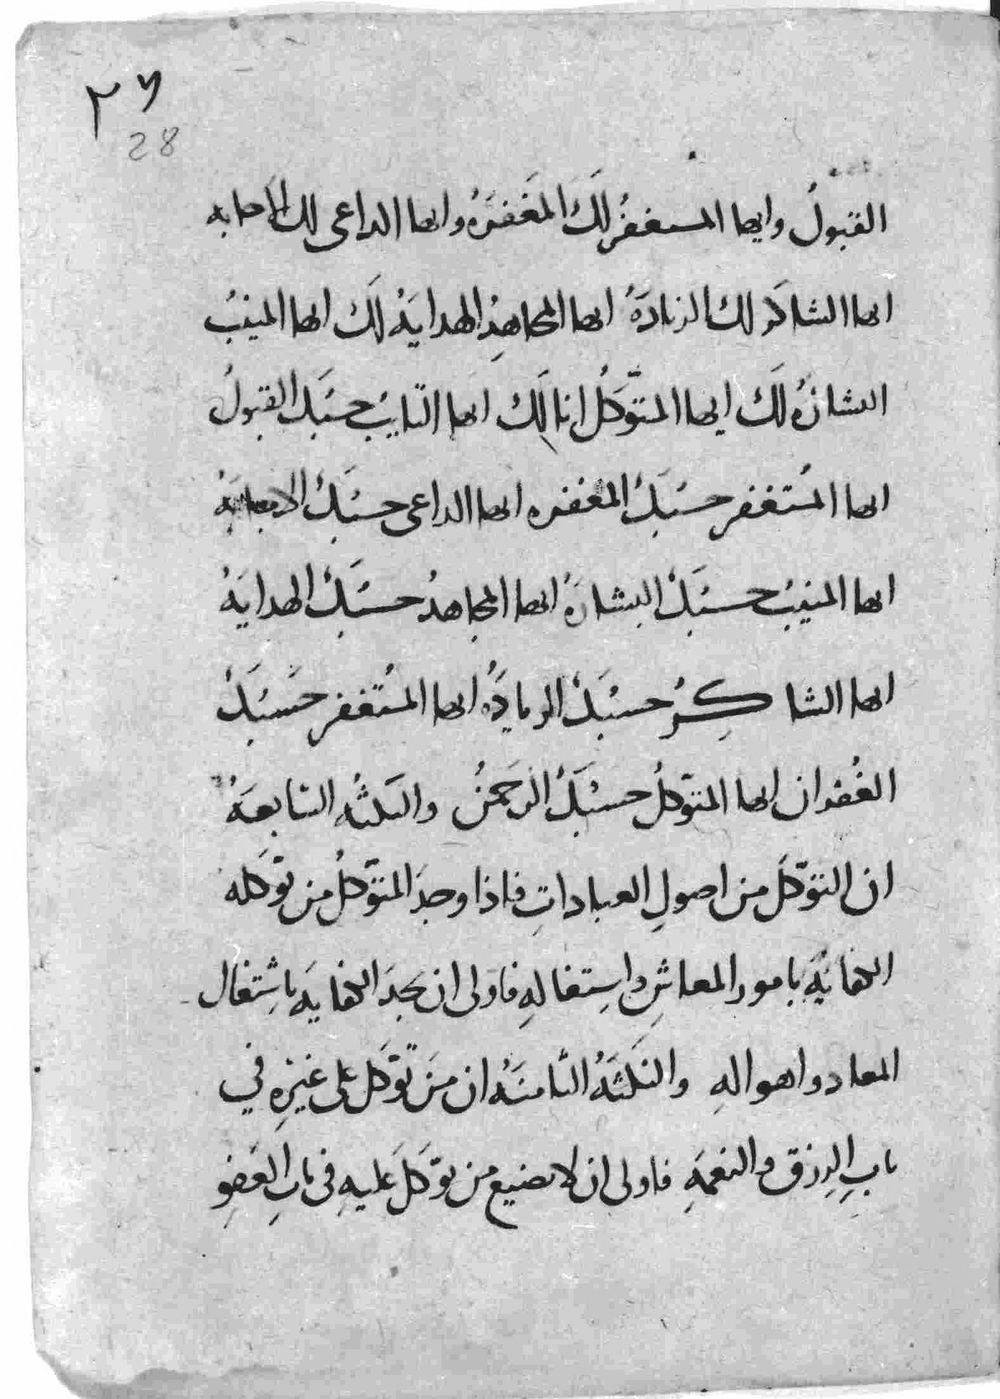 ٢٧
28
القبولُ وايها المستغفرُ لَكَ المَغفِرَةُ وايها الداعى لك الاجابه
ايها الشاكر لك الزيادَةُ ايها المجاهِدُ الهدايَةُ لَكَ ايها المنيبُ
البشارةُ لَكَ ايها المتوَكّلُ انا لَكَ ايها التايبُ حسْبُكَ القبولُ
ايها المُستغفر حسْبُكَ المغفره ايها الداعى حسْبُكَ الاجابَةُ
ايها المنيبُ حسْبُكَ البشارَةُ ايها المجاهدُ حسْبُكَ الهدايَةُ
ايها الشاكِرُ حسْبُكَ الزيادَةُ ايها المُستغفر حَسْبُكَ
الغُفران ايها المتوّكلُ حسْبُكَ الرَحمنُ والنكتَةُ السابعَةُ
ان التوّكلَ من اصولِ العباداتِ فاذا وجدَ المتوّكلُ من توّكله
الكفايَةَ بامور المعاشِ واشِتغالهِ فاولى ان يجدَ الكفايَه باشِتغال
المعاد واهوالهِ والنكتَةُ الثامنَةُ ان مَن توّكَل على غيرِهِ في
بابِ الرِزق والنعمَةِ فاولى ان لا يضيع من توّكَلَ عليهِ فى بابِ العَفوِ